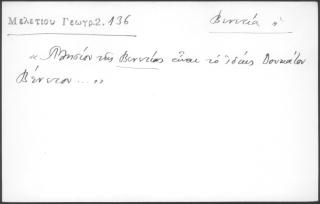 Μελετίου Γεωγρ.2.136
Βενετία
« Πλησίον τῆς Βενετίας εἶναι τὸ ἰδίως Δουκάτον
Βένετον ... »